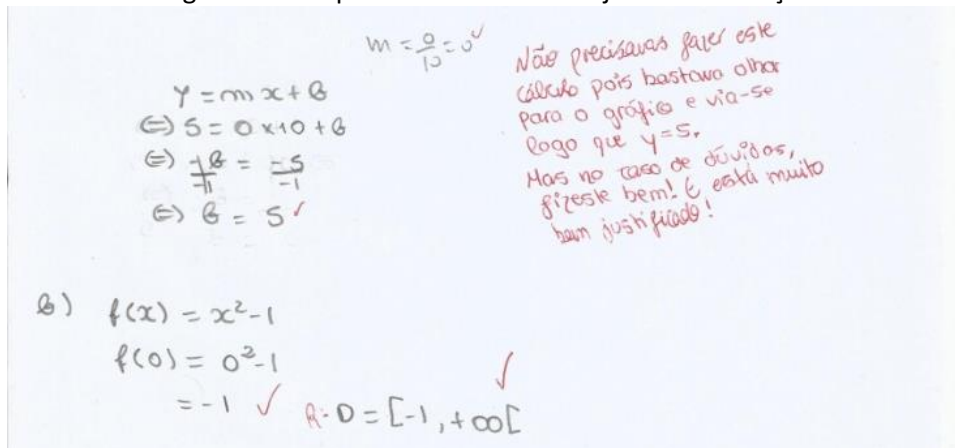 m = 0/10 = 0
y = mx + b
(=) 5 = 0 x 10 + b
(=) -b/-1 = -5/-1
(=) b = 5
Não precisavas fazer este
cálculo pois bastava olhar
para o gráfico e via-se
logo que y=5.
Mas no caso de dúvidas,
fizeste bem! E está muito
bem justificado!
b) f(x) = x²-1
f(0) = 0²-1
= -1
R: D = [-1, +∞[